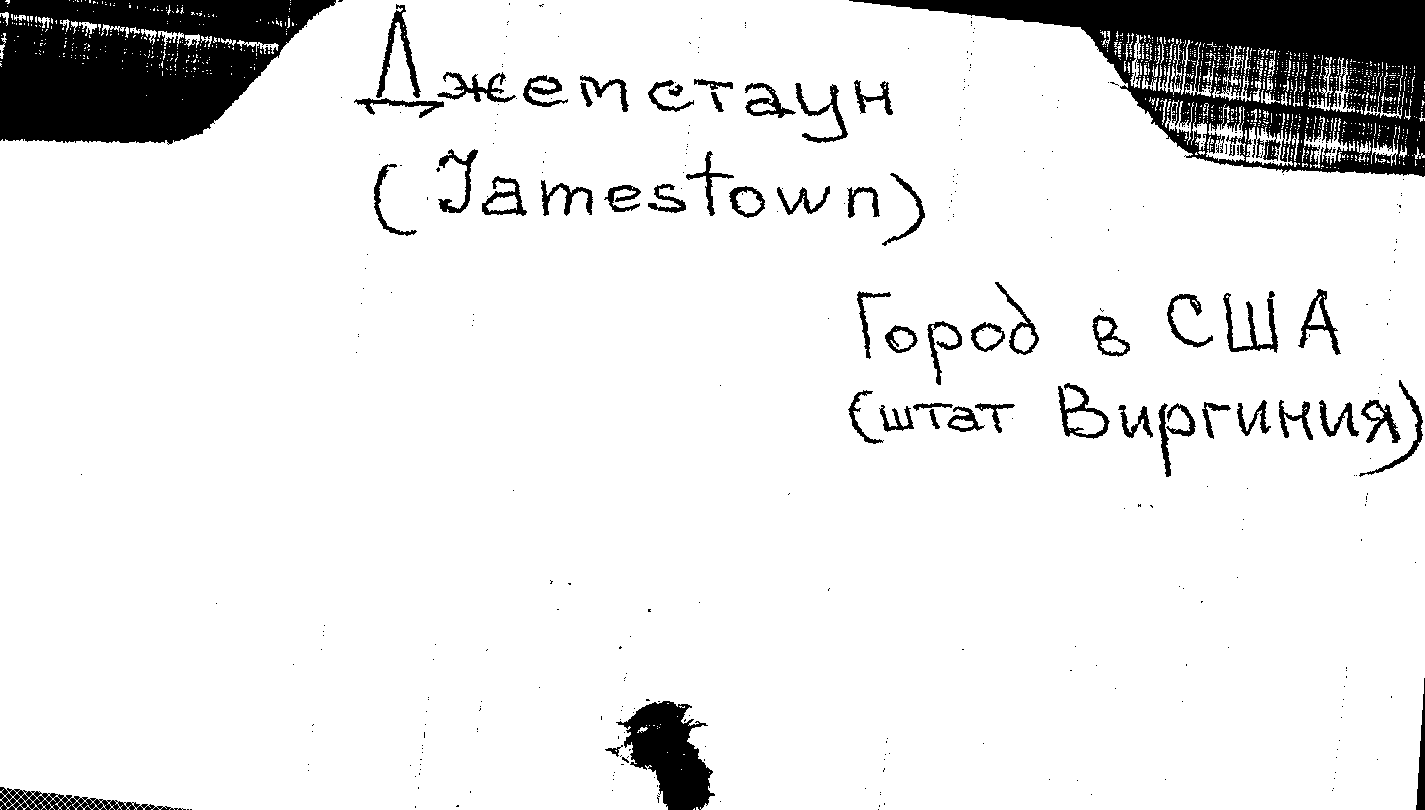 Джемстаун
(Jamestown)
Город в США
(штат Виргиния)